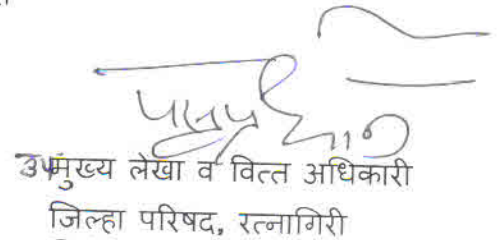 उपमुख्य लेखा व वित्त अधिकारी
जिल्हा परिषद, रत्नागिरी